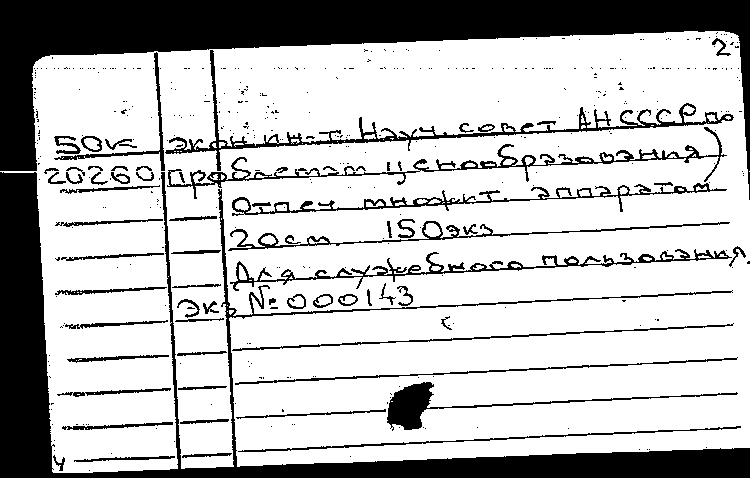 2
50к экон. ин-т. Науч. совет АН СССР по
20260 проблемам ценообразования)
Отпеч множит. аппаратом
20см 150экз
Для служебного пользования.
экз №000143